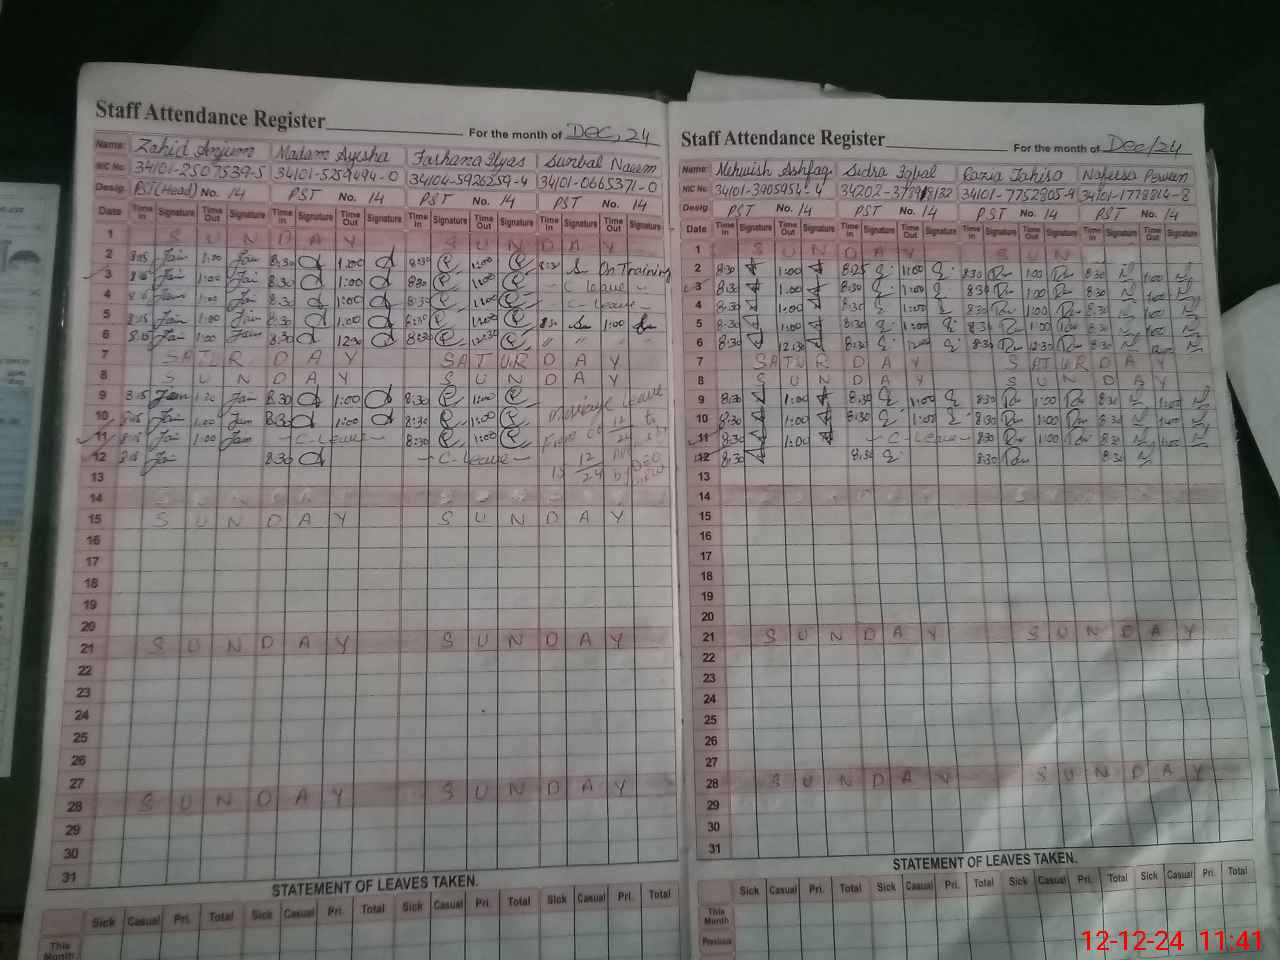 Staff Attendance Register
For the month of Dec, 24
Name: Zahid Anjum Madam Ayisha Farhana Ilyas Sunbal Naeem
NIC No 34101-2507539-5 34101-5259494-0 34104-5926259-4 34101-0665371-0
Desig. PST(Head) No. 14 PST No. 14 PST No. 14 PST No. 14
Date Time In Signature Time Out Signature Time In Signature Time Out Signature Time In Signature Time Out Signature Time In Signature Time Out Signature
1 SUNDAY SUNDAY
2 8:15 1:00 8:30 1:00 8:30 1:00 8:30 On Training
3 8:15 1:00 8:30 1:00 8:30 1:00 - C-leave -
4 8:15 1:00 8:30 1:00 8:30 1:00 - C-Leave -
5 8:15 1:00 8:30 1:00 8:30 1:00 8:30 1:00
6 8:15 1:00 8:30 12:30 8:30 12:30 " " " "
7 SATURDAY SATURDAY
8 SUNDAY SUNDAY
9 8:15 1:00 8:30 1:00 8:30 1:00 Marriage leave
10 8:15 1:00 8:30 1:00 8:30 1:00 From 12 24 to
11 8:15 1:00 - C-Leave - 8:30 1:00
12 8:15 8:30 - C-Leave - 12 24 by DEO
13
14
15 SUNDAY SUNDAY
16
17
18
19
20
21 SUNDAY SUNDAY
22
23
24
25
26
27
28 SUNDAY SUNDAY
29
30
31
STATEMENT OF LEAVES TAKEN.
Sick Casual Pri. Total Sick Casual Pri. Total Sick Casual Pri. Total Sick Casual Pri. Total
This Month
Staff Attendance Register
For the month of Dec/24
Name: Mehwish Ashfaq Sidra Iqbal Razia Tahira Nafeesa Perveen
NIC No 34101-3905954-4 34202- 34101-7752805-9 34101-1778814-8
Desig. PST No. 14 PST No. 14 PST No. 14 PST No. 14
Date Time In Signature Time Out Signature Time In Signature Time Out Signature Time In Signature Time Out Signature Time In Signature Time Out Signature
1 SUNDAY SUN
2 8:30 1:00 8:25 1:00 8:30 1:00 8:30 1:00
3 8:30 1:00 8:30 1:00 8:30 1:00 8:30 1:00
4 8:30 1:00 8:30 1:00 8:30 1:00 8:30 1:00
5 8:30 1:00 8:30 1:00 8:30 1:00 8:30 1:00
6 8:30 12:30 8:30 8:30 12:30 8:30
7 SATURDAY SATURDAY
8 SUNDAY SUNDAY
9 8:30 1:00 8:30 1:00 8:30 1:00 8:30 1:00
10 8:30 1:00 8:30 1:00 8:30 1:00 8:30 1:00
11 8:30 1:00 - C-Leave- 8:30 1:00 8:30 1:00
12 8:30 8:30 8:30 8:30
13
14
15
16
17
18
19
20
21 SUNDAY SUNDAY
22
23
24
25
26
27
28 SUNDAY SUNDAY
29
30
31
STATEMENT OF LEAVES TAKEN.
Sick Casual Pri. Total Sick Casual Pri. Total Sick Casual Pri. Total Sick Casual Pri. Total
This Month
Previous
12-12-24 11:41